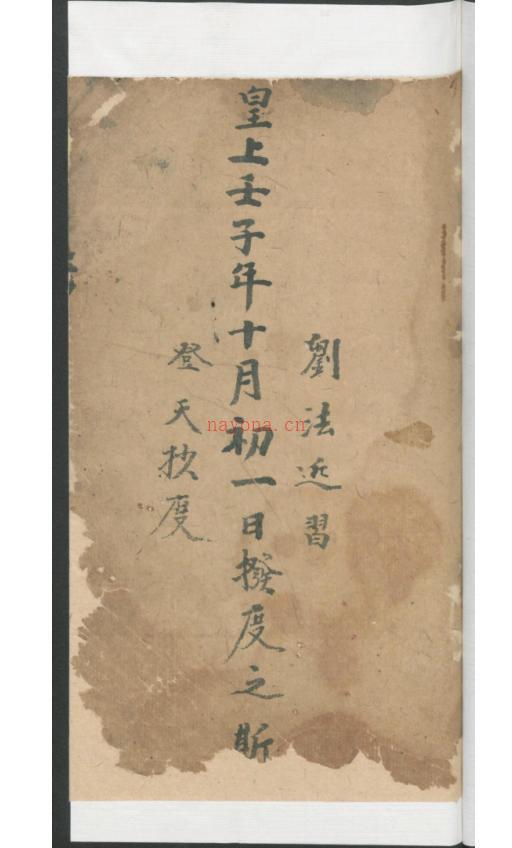 劉法近習
皇上壬子年十月初一日撥度之斯
登天抄度
nayona.cn